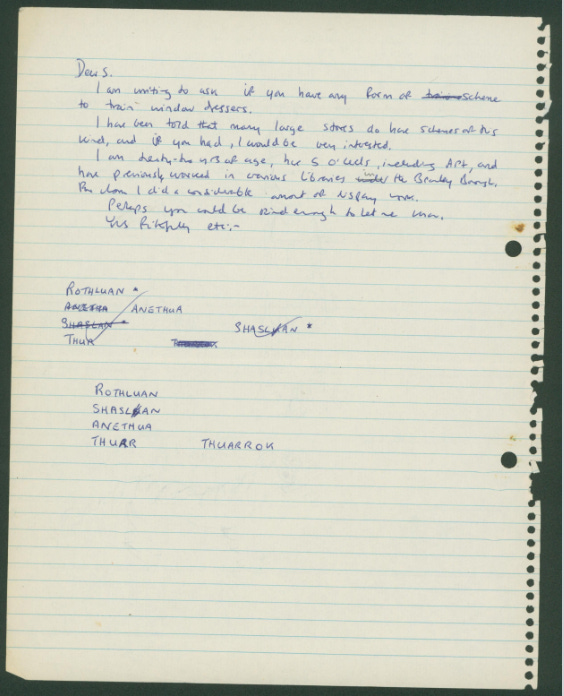 Dear S.
I am writing to ask if you have any form of scheme
to train window dressers.
I have been told that many large stores do have schemes of this
kind, and if you had, I would be very interested.
I am twenty-two yrs of age, have 5 O'levels, including Art, and
have previously worked in various libraries in the Bromley Borough.
For whom I did a considerable amount of display work.
Perhaps you could be kind enough to let me know.
Yrs faithfully etc:-
ROTHLUAN *
ANETHUA
SHASLAN * SHASLUAN *
THUA
ROTHLUAN
SHASLUAN
ANETHUA
THUAR THUARROK